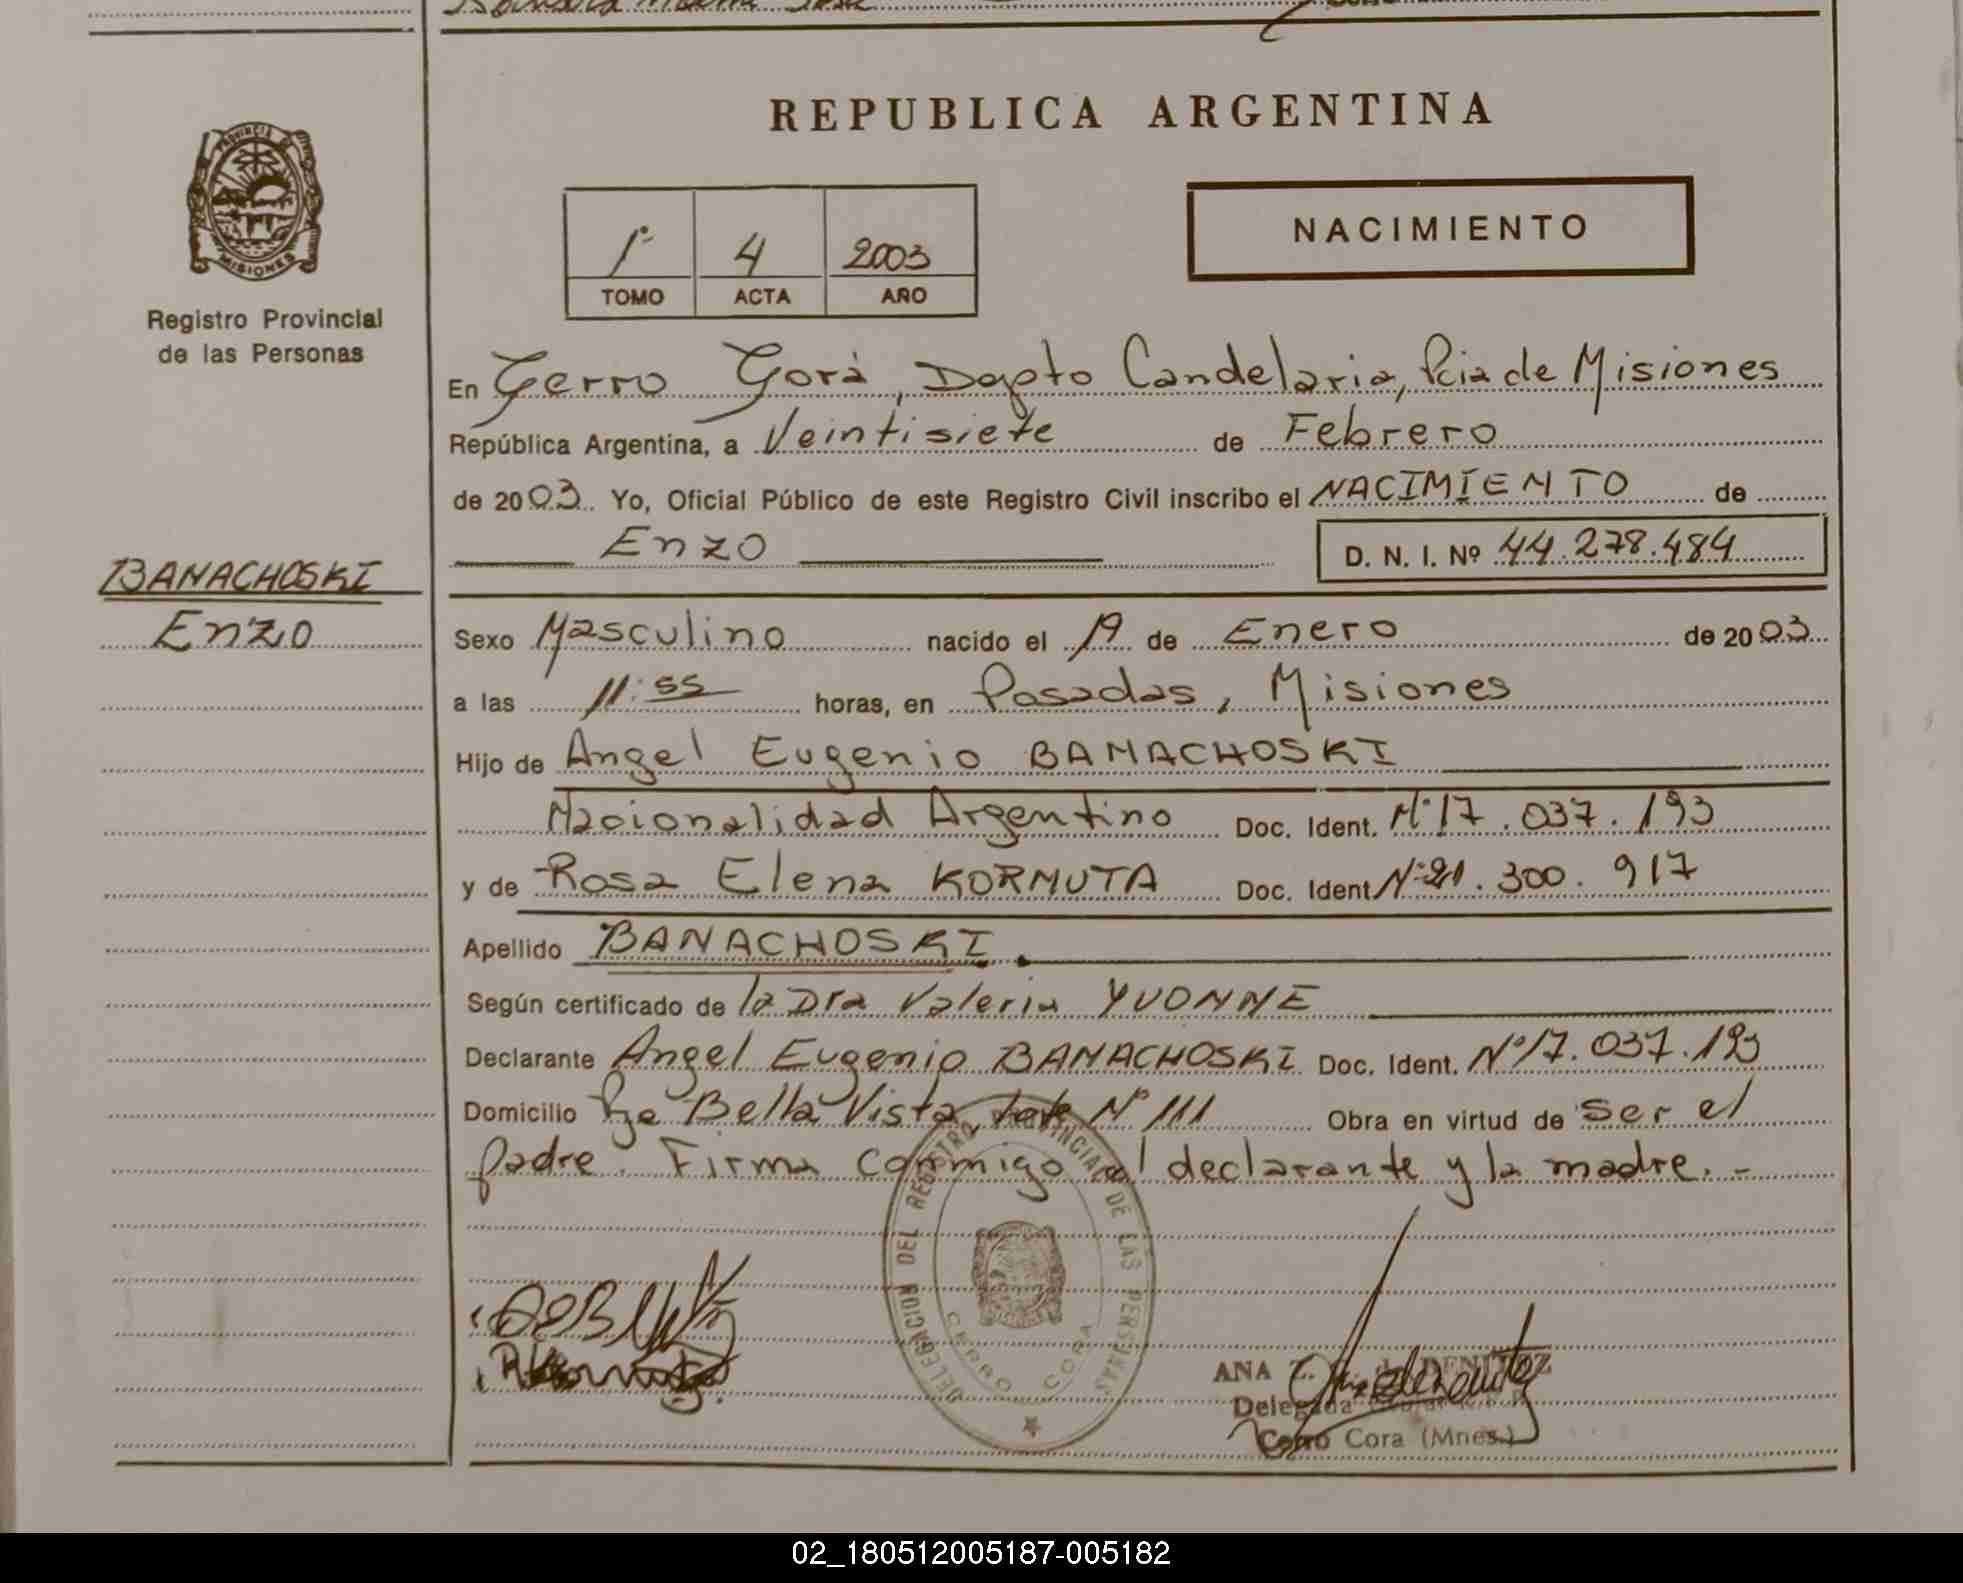 REPUBLICA ARGENTINA
PROVINCIA DE
MISIONES
Registro Provincial
de las Personas
1º 4 2003
TOMO ACTA AÑO
NACIMIENTO
En Cerro Corá, Dapto Candelaria, Pcia de Misiones
República Argentina, a Veintisiete de Febrero
de 2003. Yo, Oficial Público de este Registro Civil inscribo el NACIMIENTO de
Enzo D. N. I. Nº 44.278.484
BANACHOSKI
Enzo
Sexo Masculino nacido el 19 de Enero de 2003
a las 11:55 horas, en Posadas, Misiones
Hijo de Angel Eugenio BANACHOSKI
Nacionalidad Argentino Doc. Ident. Nº 17.037.193
y de Rosa Elena KORMUTA Doc. Ident Nº 21.300.917
Apellido BANACHOSKI.
Según certificado de la Dra Valeria YVONNE
Declarante Angel Eugenio BANACHOSKI Doc. Ident. Nº 17.037.193
Domicilio Pje Bella Vista, Lote Nº 111 Obra en virtud de ser el
padre. Firma conmigo el declarante y la madre.-
DELEGACION DEL REGISTRO PROVINCIAL DE LAS PERSONAS
CERRO CORA
ANA BENITEZ
Delegada
Cerro Cora (Mnes.)
02_180512005187-005182